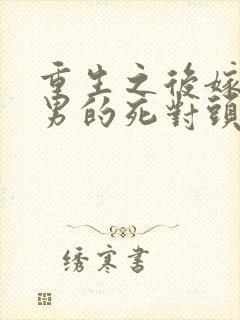 重生之後嫁
男的死對頭
绣寒書